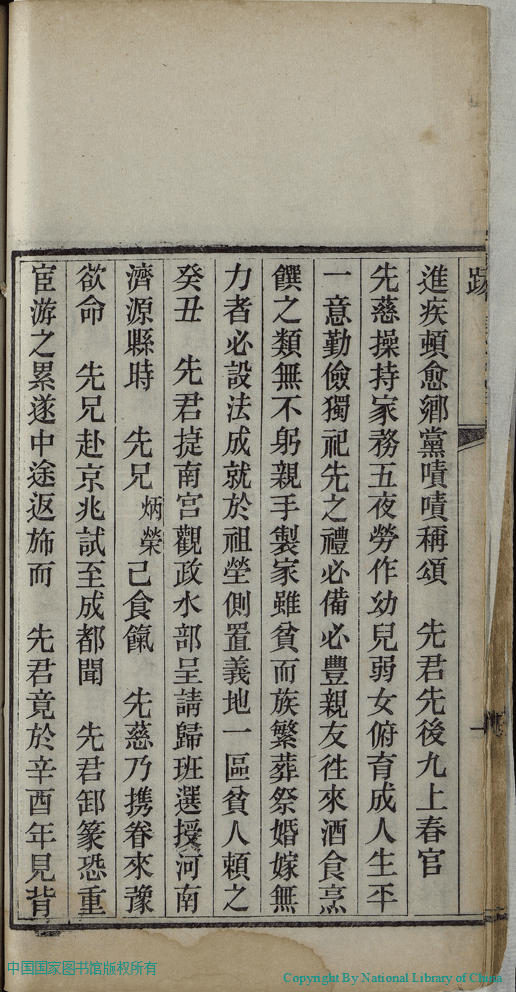 進疾頓愈鄉黨嘖嘖稱頌　先君先後九上春官
先慈操持家務五夜勞作幼兒弱女俯育成人生平
一意勤儉獨祀先之禮必備必豐親友徃來酒食烹
饌之類無不躬親手製家雖貧而族繁葬祭婚嫁無
力者必設法成就於祖塋側置義地一區貧人賴之
癸丑　先君捷南宮觀政水部呈請歸班選授河南
濟源縣時　先兄炳榮已食餼　先慈乃携眷來豫
欲命　先兄赴京兆試至成都聞　先君卸篆恐重
宦游之累遂中途返斾而　先君竟於辛酉年見背
中国国家图书馆版权所有
Copyright By National Library of China